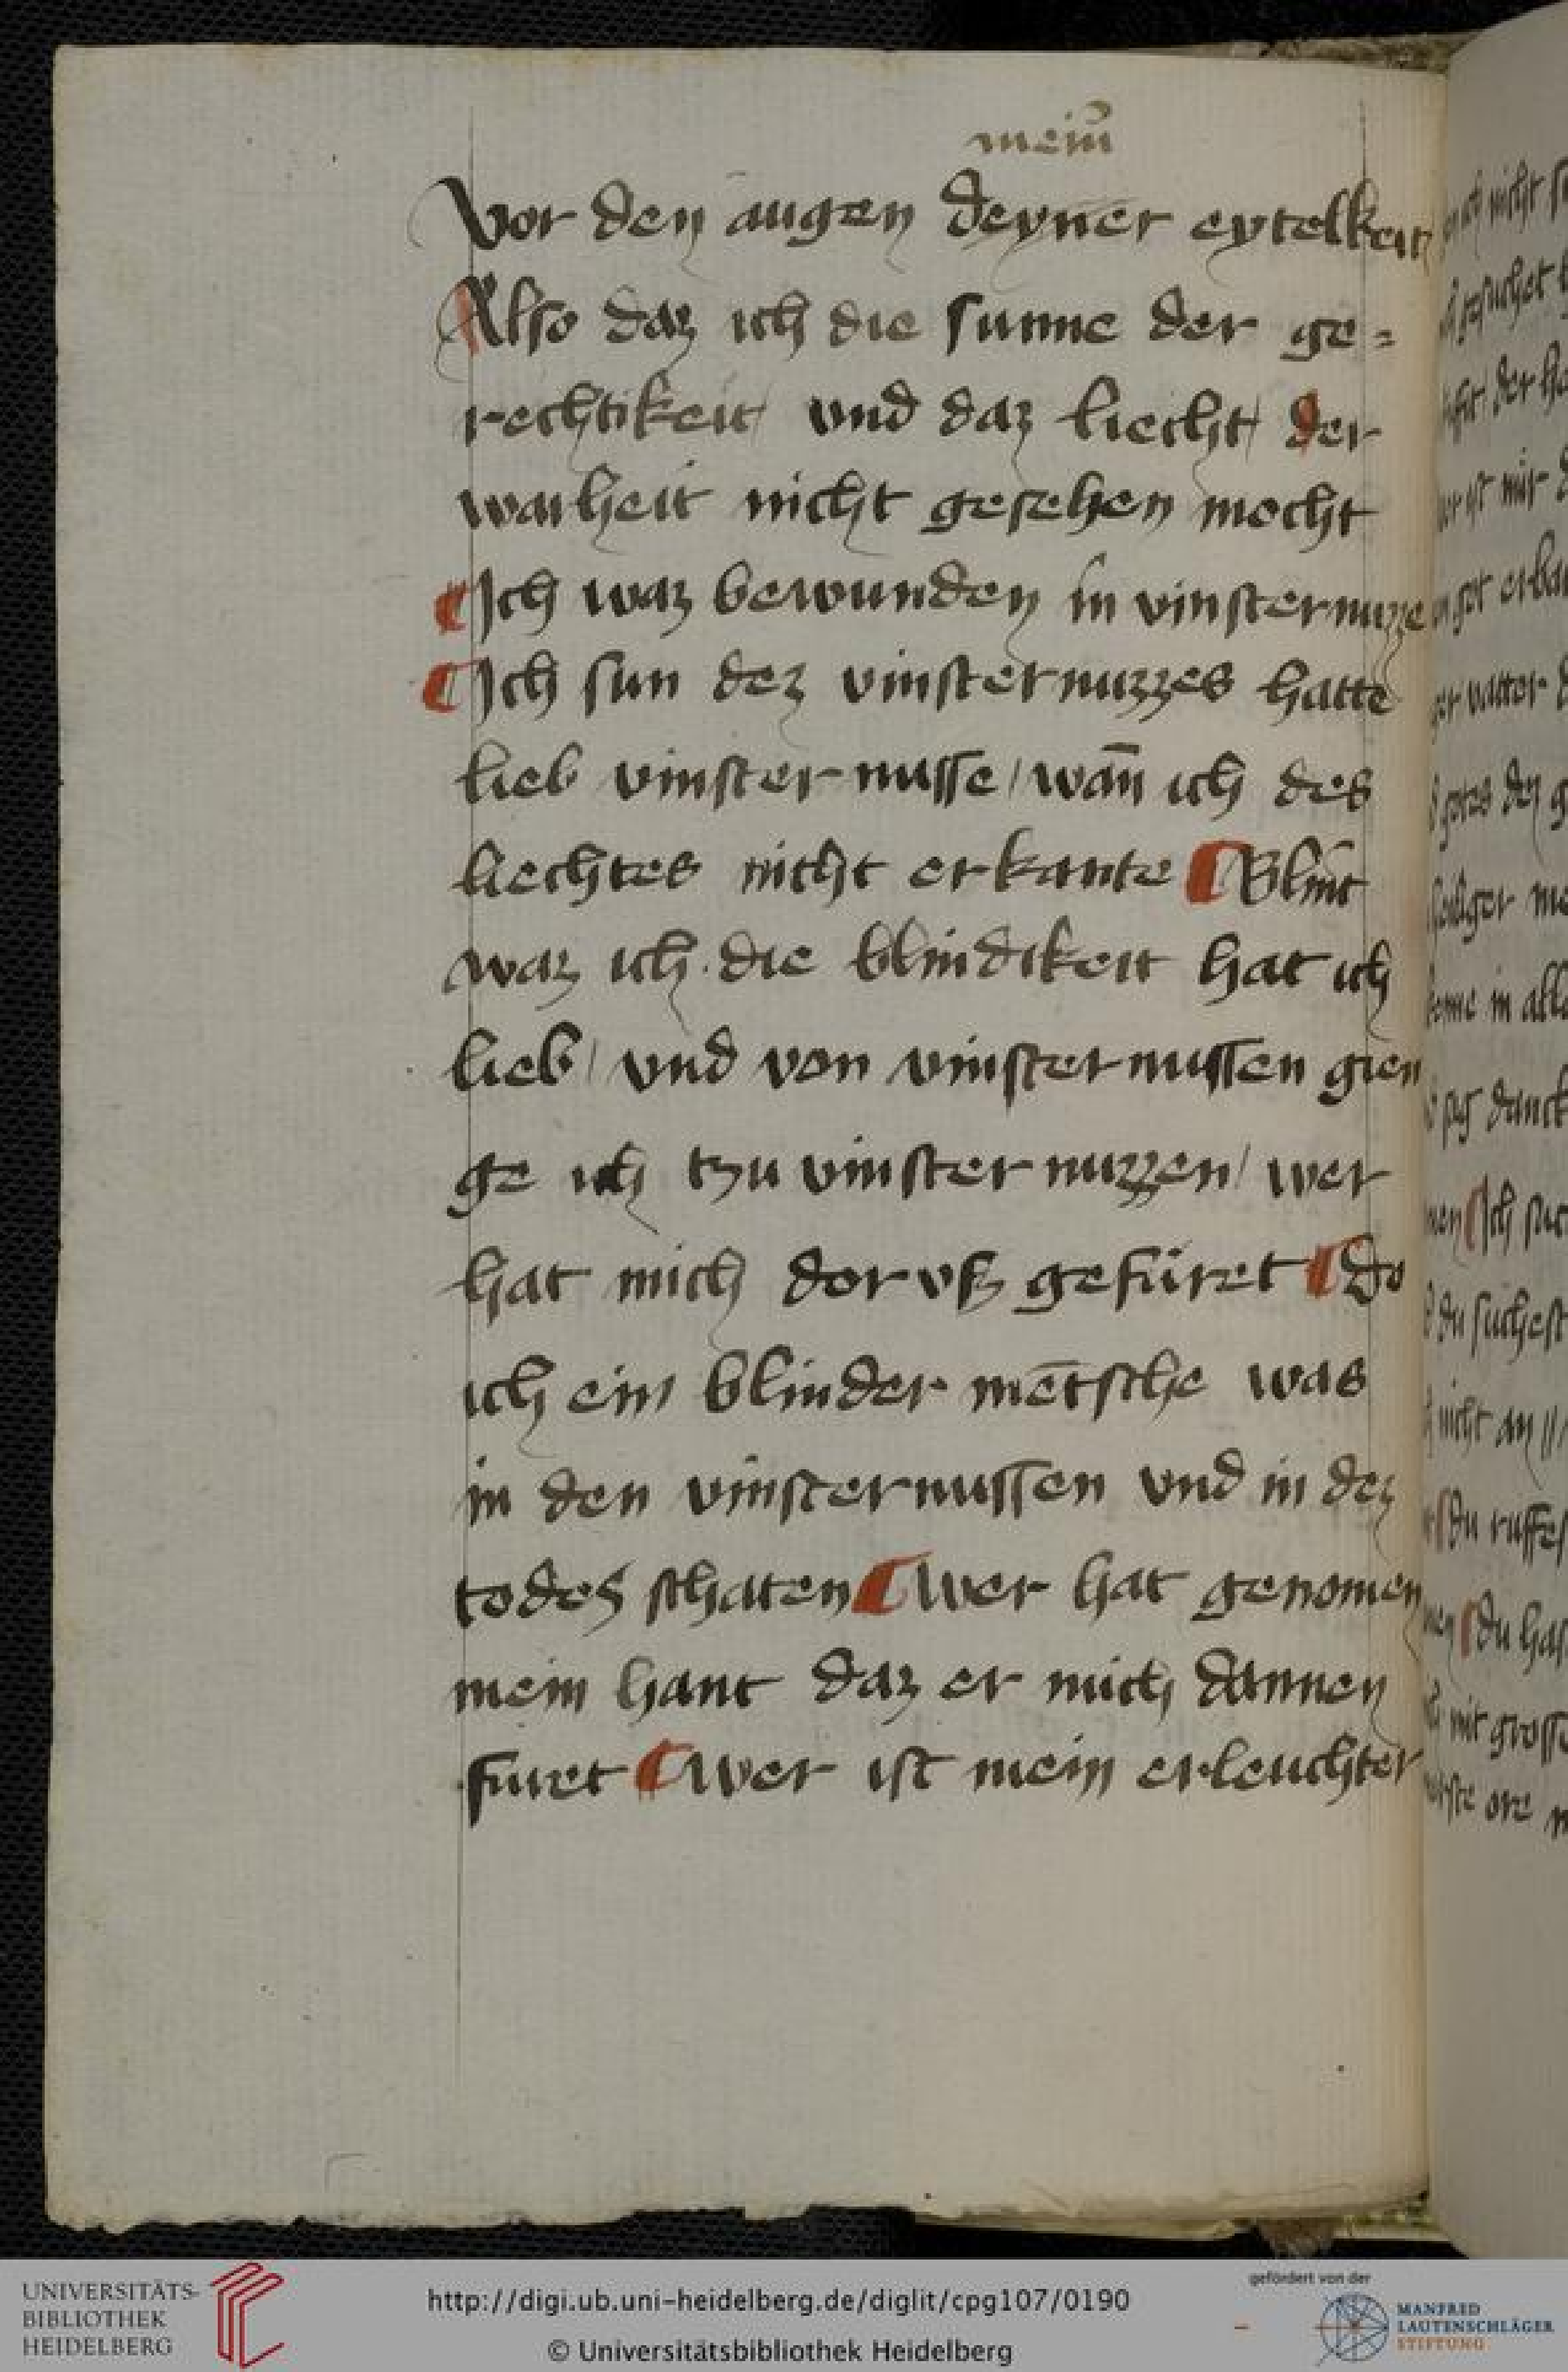 meiner
vor den augen deyner eytelkeit
Also daz ich die sunne der ge=
rechtikeit / vnd daz liecht / der
warheit nicht gesehen mocht
¶ Ich waz bewunden in vinsternuzze
¶ Ich sun dez vinsternuzzes hatte
lieb vinsternusse / wan̄ ich des
liechtes nicht erkante ¶ Blint
waz ich. die blindikeit hat ich
lieb / vnd von vinsternussen gien
ge ich tzu vinsternuzzen / wer
hat mich dor vß gefüret ¶ Do
ich ein blinder mētsche was
in den vinsternussen vnd in dez
todes schaten ¶ Wer hat genomen
mein hant daz er mich dannen
furet ¶ Wer ist mein erleuchter
UNIVERSITÄTS-
BIBLIOTHEK
HEIDELBERG
http://digi.ub.uni-heidelberg.de/diglit/cpg107/0190
© Universitätsbibliothek Heidelberg
gefördert von der
MANFRED
LAUTENSCHLÄGER
STIFTUNG